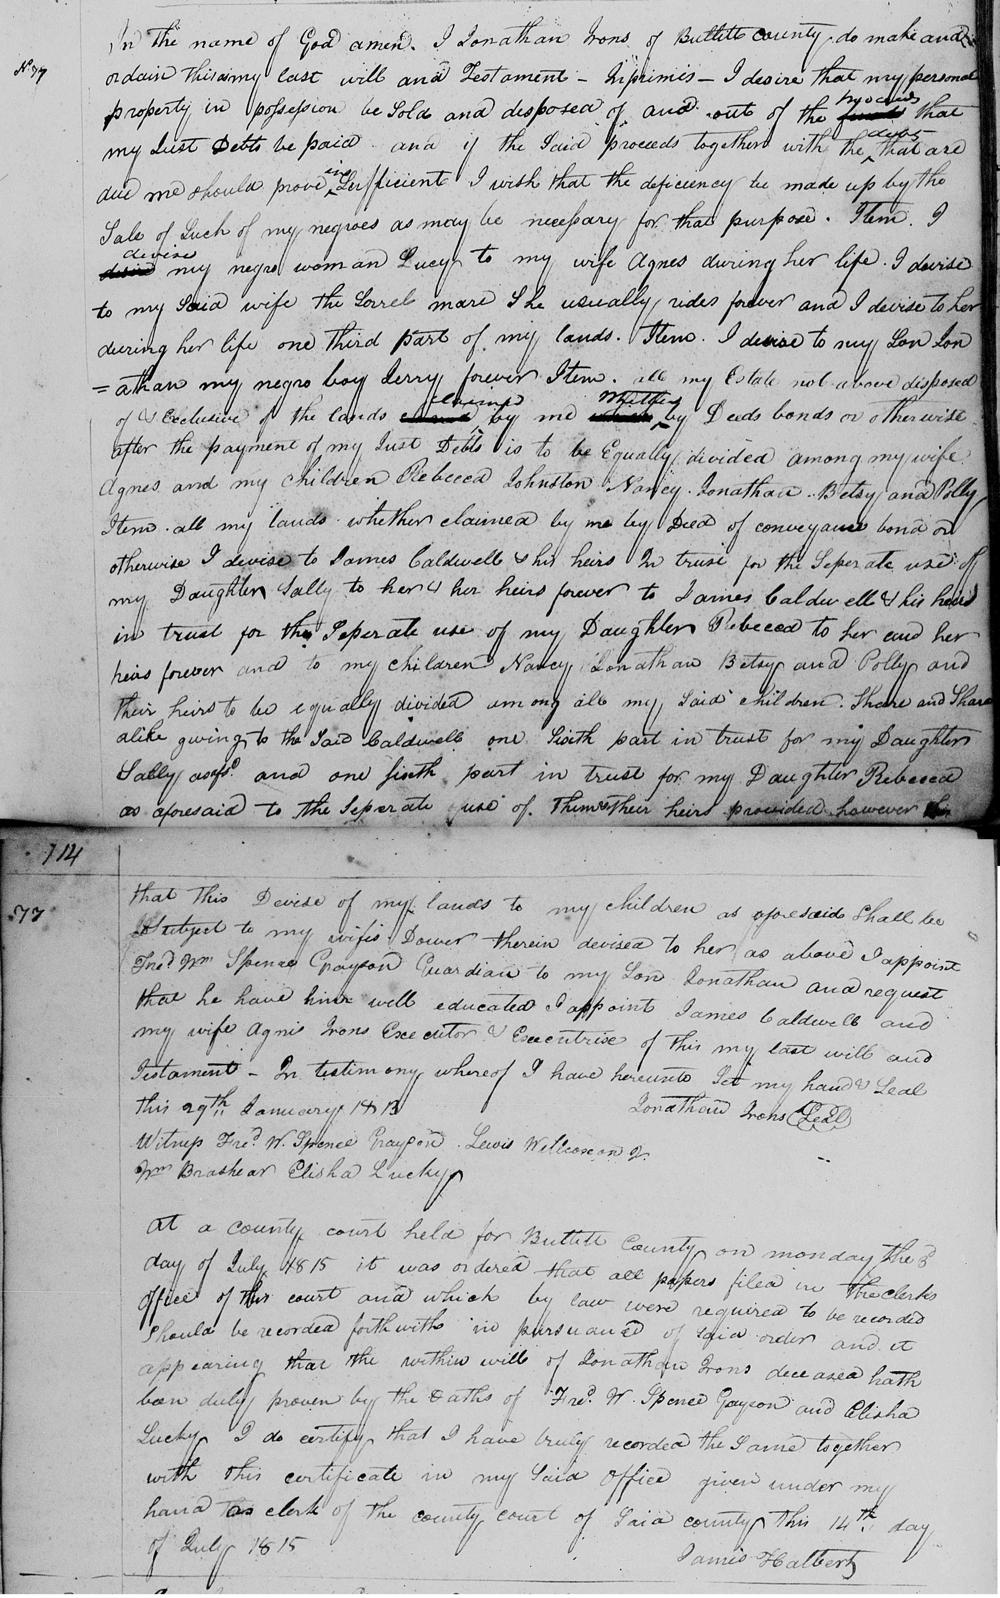 In the name of God amen. I Jonathan Irons of Bullitt county do make and
No 77
ordain this as my last will and Testament - Inprimis - I desire that my personal
property in possession be Sold and disposed of, and out of the proceeds that
my Just Debts be paid and if the Said proceeds together with the debts that are
due me should prove insufficient I wish that the deficiency be made up by the
Sale of Such of my negroes as may be necessary for that purpose. Item. I
devise my negro woman Lucy to my wife Agnes during her life. I devise
to my Said wife the Sorrel mare She usually rides forever and I devise to her
during her life one third part of my lands. Item. I devise to my Son Jon
=athan my negro boy Jerry forever Item. all my Estate not above disposed
of & Exclusive of the lands claimed by me whether by Deeds bonds or otherwise
after the payment of my Just Debts is to be Equally divided among my wife
Agnes and my children Rebecca Johnston Nancy. Jonathan. Betsy and Polly
Item. all my lands whether claimed by me by Deed of conveyance bond or
otherwise I devise to James Caldwell & his heirs In trust for the Seperate use of
my Daughter Sally to her & her heirs forever to James Caldwell & his heirs
in trust for the Seperate use of my Daughter Rebecca to her and her
heirs forever and to my children Nancy Jonathan Betsy and Polly and
their heirs to be equally divided among all my Said children. Share and Share
alike giving to the Said Caldwell one Sixth part in trust for my Daughter
Sally aofsd. and one Sixth part in trust for my Daughter Rebecca
as aforesaid to the Seperate use of them & their heirs provided however
714
77
that this Devise of my lands to my children as aforesaid Shall be
Subject to my wifes Dower therein devised to her as above I appoint
Fred. Wm Spence Grayson Guardian to my Son Jonathan and request
that he have him well educated I appoint James Caldwell and
my wife Agnis Irons Executor & Executrise of this my last will and
Testament - In testimony whereof I have hereunto Set my hand & Seal
this 29th January 1813
Jonathan Irons Seal
Witness Fred. W. Spence Grayson. Lewis Willcoxon Jr.
Wm Brashear Elisha Lucky
At a county court held for Bullitt County on monday the
day of July 1815 it was ordered that all papers filed in the clerks
office of this court and which by law were required to be recorded
Should be recorded forthwith in pursuance of Said order and it
appearing that the within will of Jonathan Irons deceased hath
been duly proven by the Oaths of Fred. W. Spence Gayson and Elisha
Lucky I do certify that I have truly recorded the Same together
with this certificate in my Said office given under my
hand as clerk of the county court of Said county this 14th day
of July 1815
James Halbert